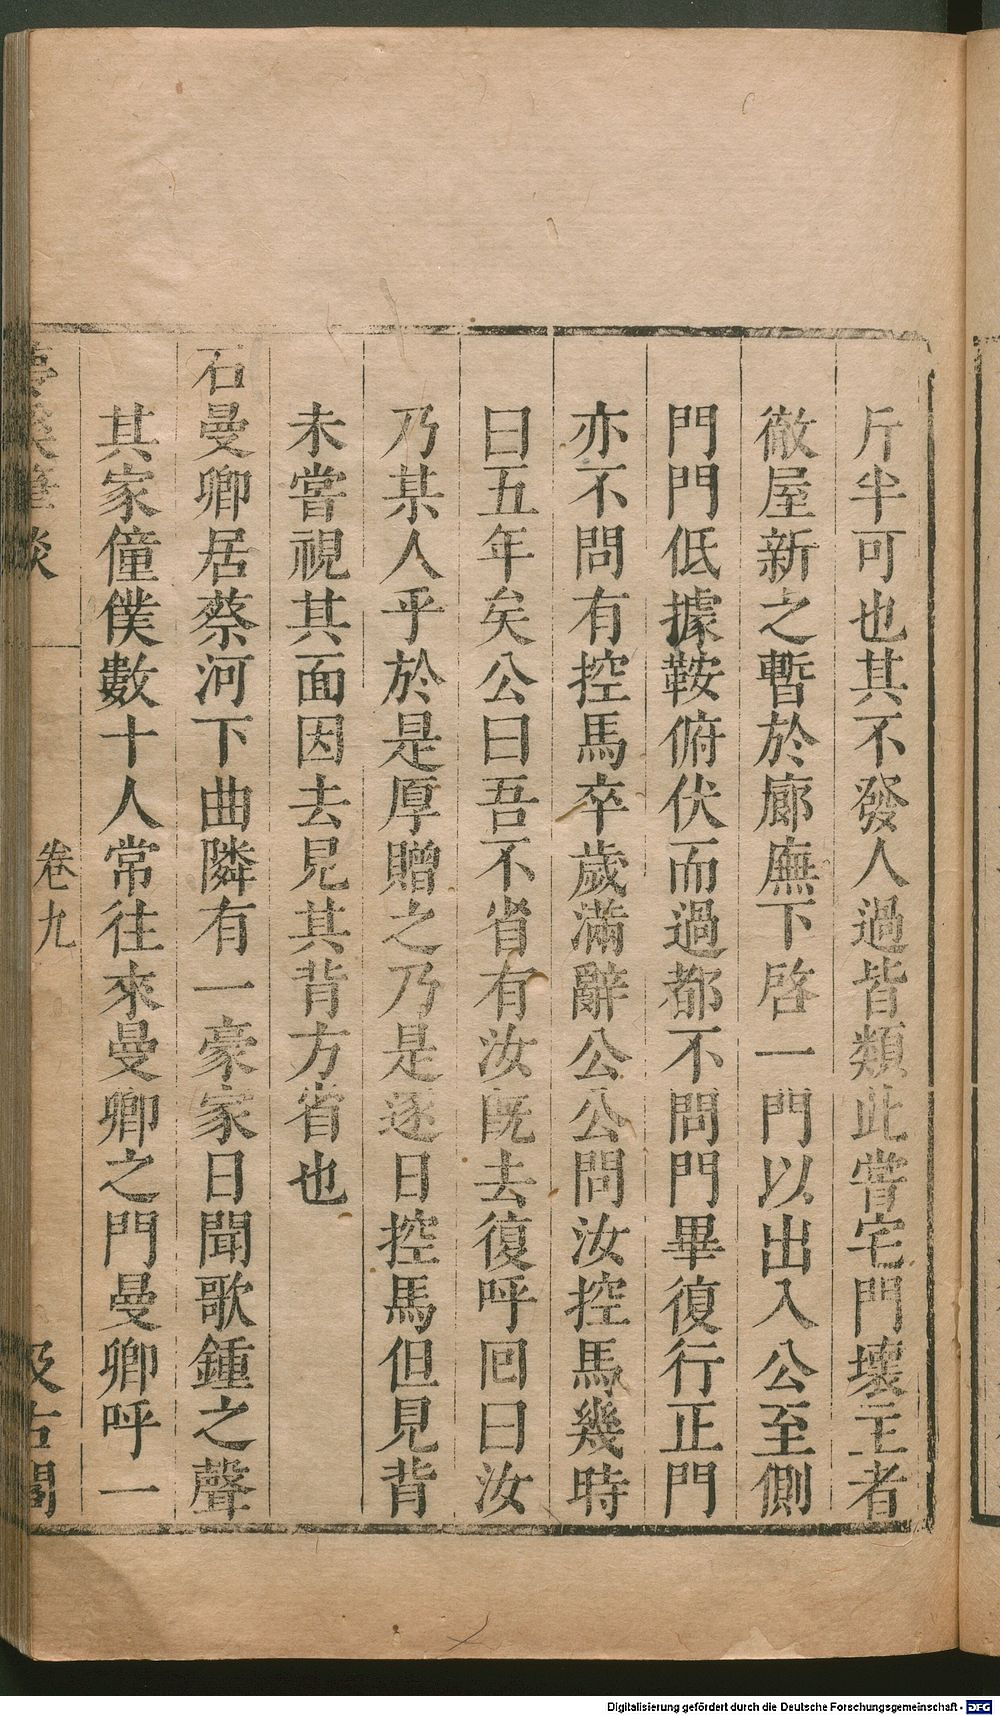 斤半可也其不發人過皆類此嘗宅門壞主者
徹屋新之暫於廊廡下啓一門以出入公至側
門門低據鞍俯伏而過都不問門畢復行正門
亦不問有控馬卒歲滿辭公公問汝控馬幾時
曰五年矣公曰吾不省有汝旣去復呼囘曰汝
乃某人乎於是厚贈之乃是逐日控馬但見背
未嘗視其面因去見其背方省也
石曼卿居蔡河下曲隣有一豪家日聞歌鍾之聲
其家僮僕數十人常往來曼卿之門曼卿呼一
夢溪筆談
卷九
汲古閣
Digitalisierung gefördert durch die Deutsche Forschungsgemeinschaft - DFG